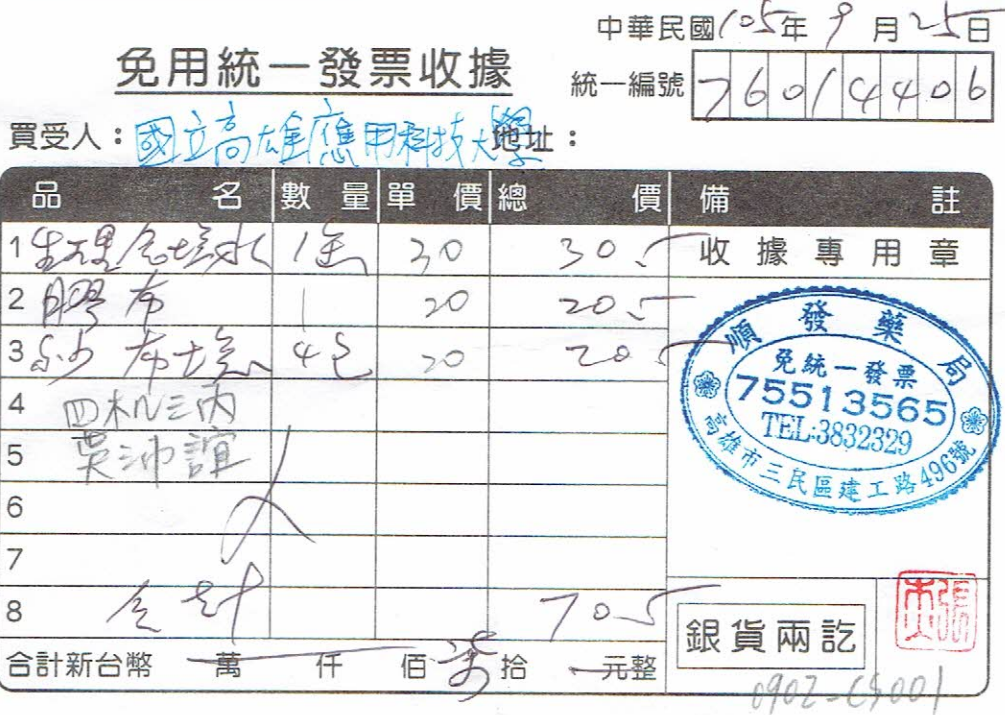 中華民國105年9月25日
免用統一發票收據
統一編號 76014406
買受人：國立高雄應用科技大學 地址：
品名 數量 單價 總價 備註
1 生理食塩水 1盒 30 30.- 收據專用章
2 膠布 1 20 20.-
3 紗布塊 4包 20 20.-
4 四機三丙
5 吳沛誼
6
7
8 合計 70.-
順發藥局
免統一發票
75513565
TEL:3832329
高雄市三民區建工路496號
銀貨兩訖
合計新台幣 萬 仟 佰 柒拾 元整